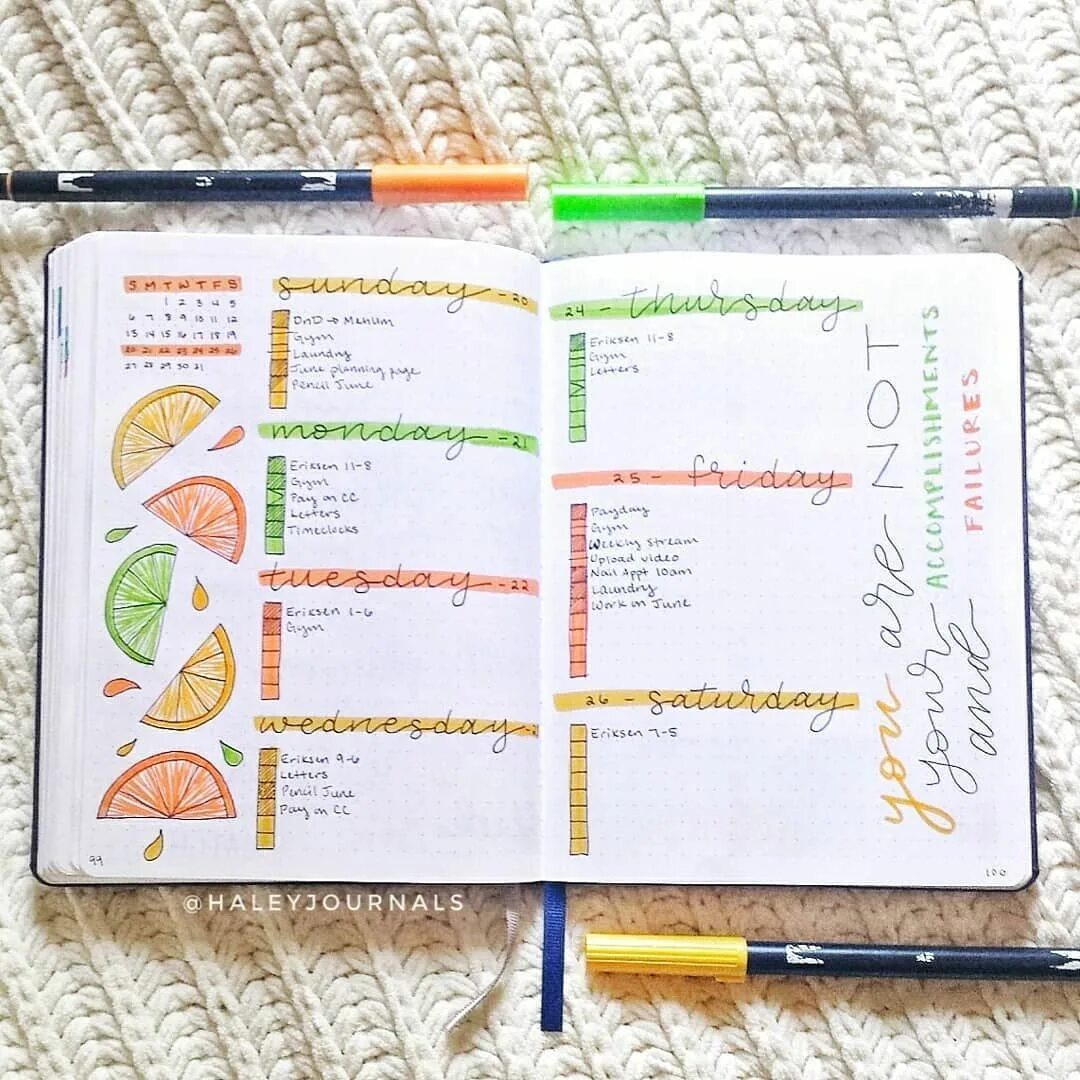 S M T W T F S
1 2 3 4 5
6 7 8 9 10 11 12
13 14 15 16 17 18 19
20 21 22 23 24 25 26
27 28 29 30 31
sunday - 20
DnD →
Gym
Laundry
June planning page
Pencil June
monday - 21
Eriksen 11-8
Gym
Pay on CC
Letters
Timeclocks
tuesday - 22
Eriksen 1-6
Gym
wednesday - 2
Eriksen 9-6
Letters
Pencil June
Pay on CC
99
24 - thursday
Eriksen 11-8
Gym
Letters
25 - friday
Payday
Gym
Weekly Stream
Upload video
Nail Appt 10am
Laundry
Work on June
26 - saturday
Eriksen 7-5
you are NOT
your ACCOMPLISHMENTS
and FAILURES
100
@HALEYJOURNALS